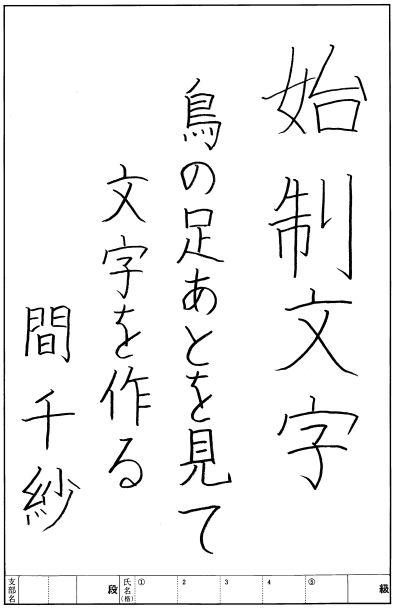 始制文字
鳥の足あとを見て
文字を作る
間千紗
支部名 段 氏名(格) ① 2 3 4 ⑤ 級